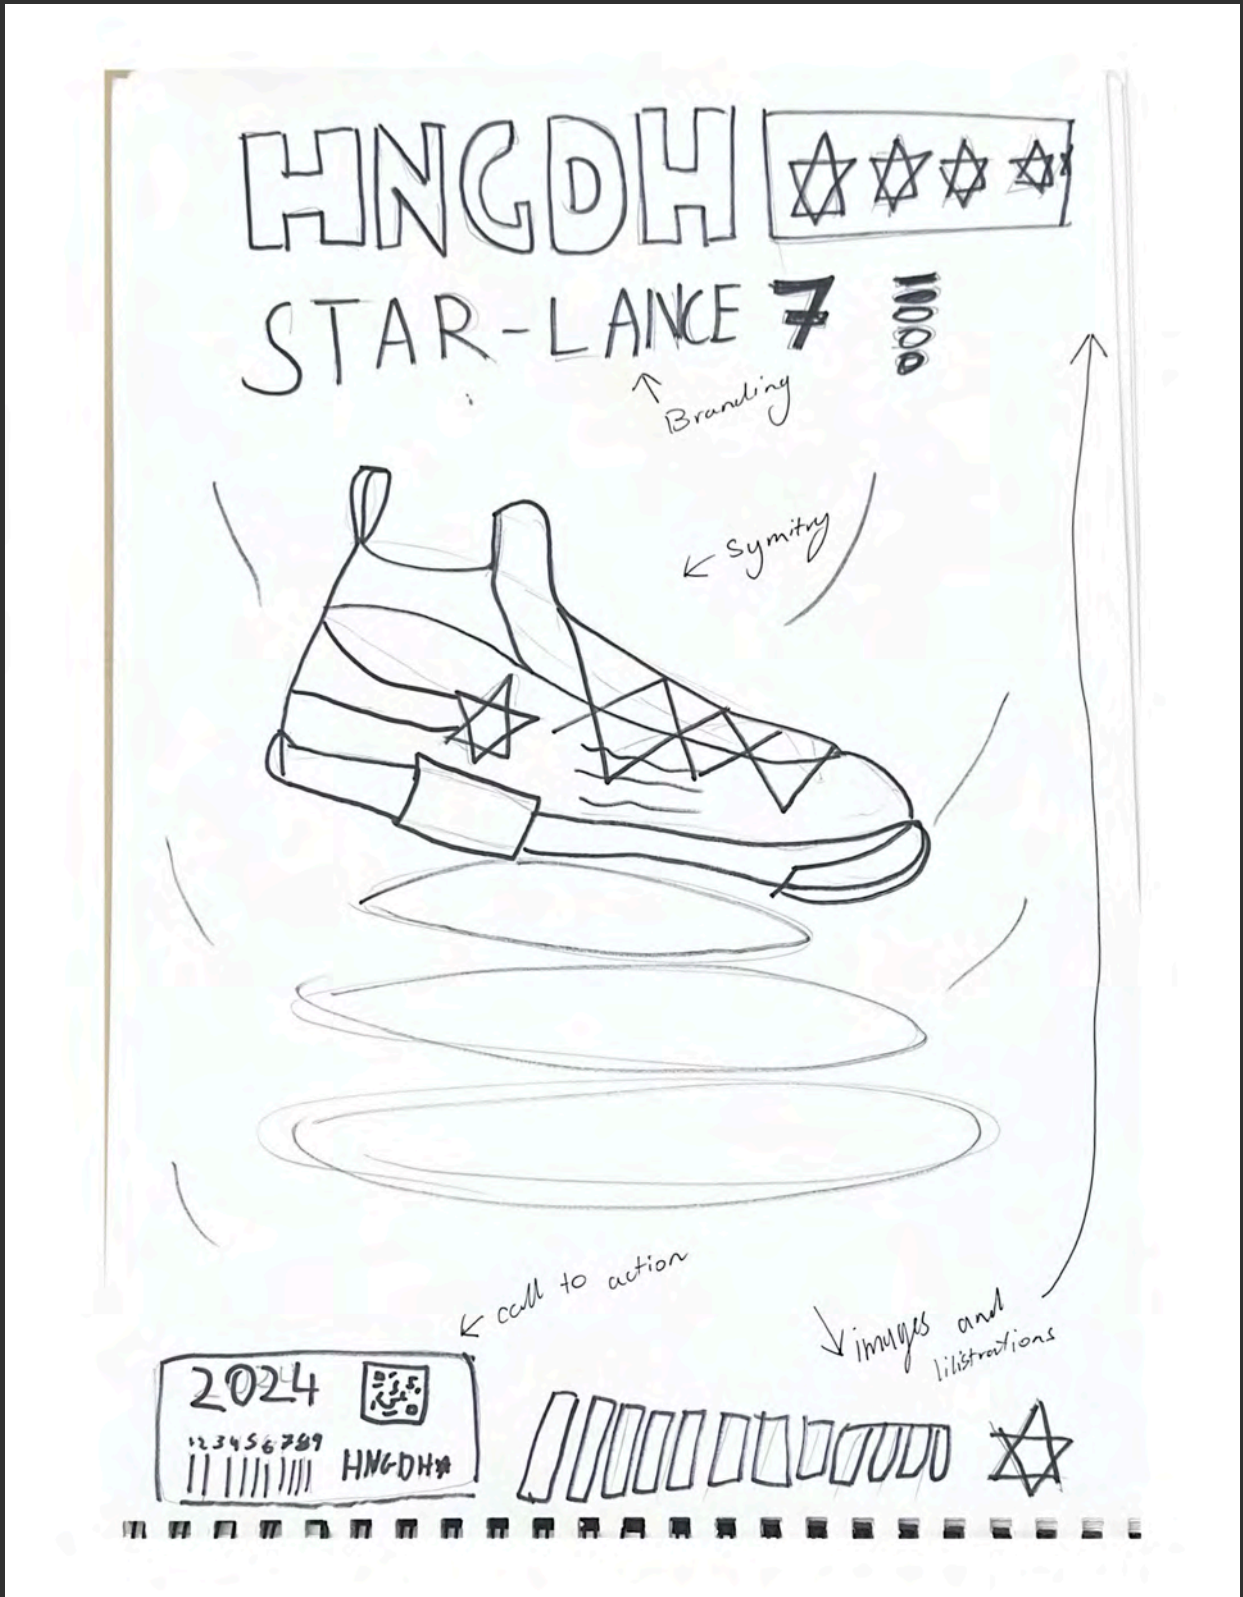 HNGDH
STAR-LANCE 7
Branding
Symitry
call to action
images and
lilistrations
2024
123456789
HNGDH